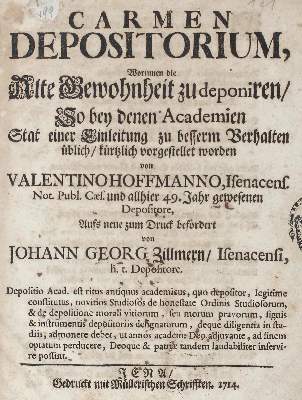 CARMEN
DEPOSITORIUM,
Worinnen die
Alte Gewohnheit zu deponiren/
So bey denen Academien
Stat einer Einleitung zu besserm Verhalten
üblich/ kürtzlich vorgestellet worden
von
VALENTINO HOFFMANNO, Isenacens.
Not. Publ. Cæs. und allhier 49. Jahr gewesenen
Depositore,
Aufs neue zum Druck befördert
von
JOHANN GEORG Zillmern/ Isenacensi,
h. t. Depositore.
Depositio Acad. est ritus antiquus academicus, quo depositor, legitime
constitutus, novitios Studiosos de honestate Ordinis Studiosorum,
& de depositione morali vitiorum, seu morum pravorum, signis
& instrumentis depositoriis designatorum, deque diligentia in stu-
diis, admonere debet, ut annos academ. Deo adjuvante, ad finem
optatum perducere, Deoque & patriæ tandem laudabiliter inservi-
re possint.
JENA/
Gedruckt mit Müllerischen Schrifften. 1714.